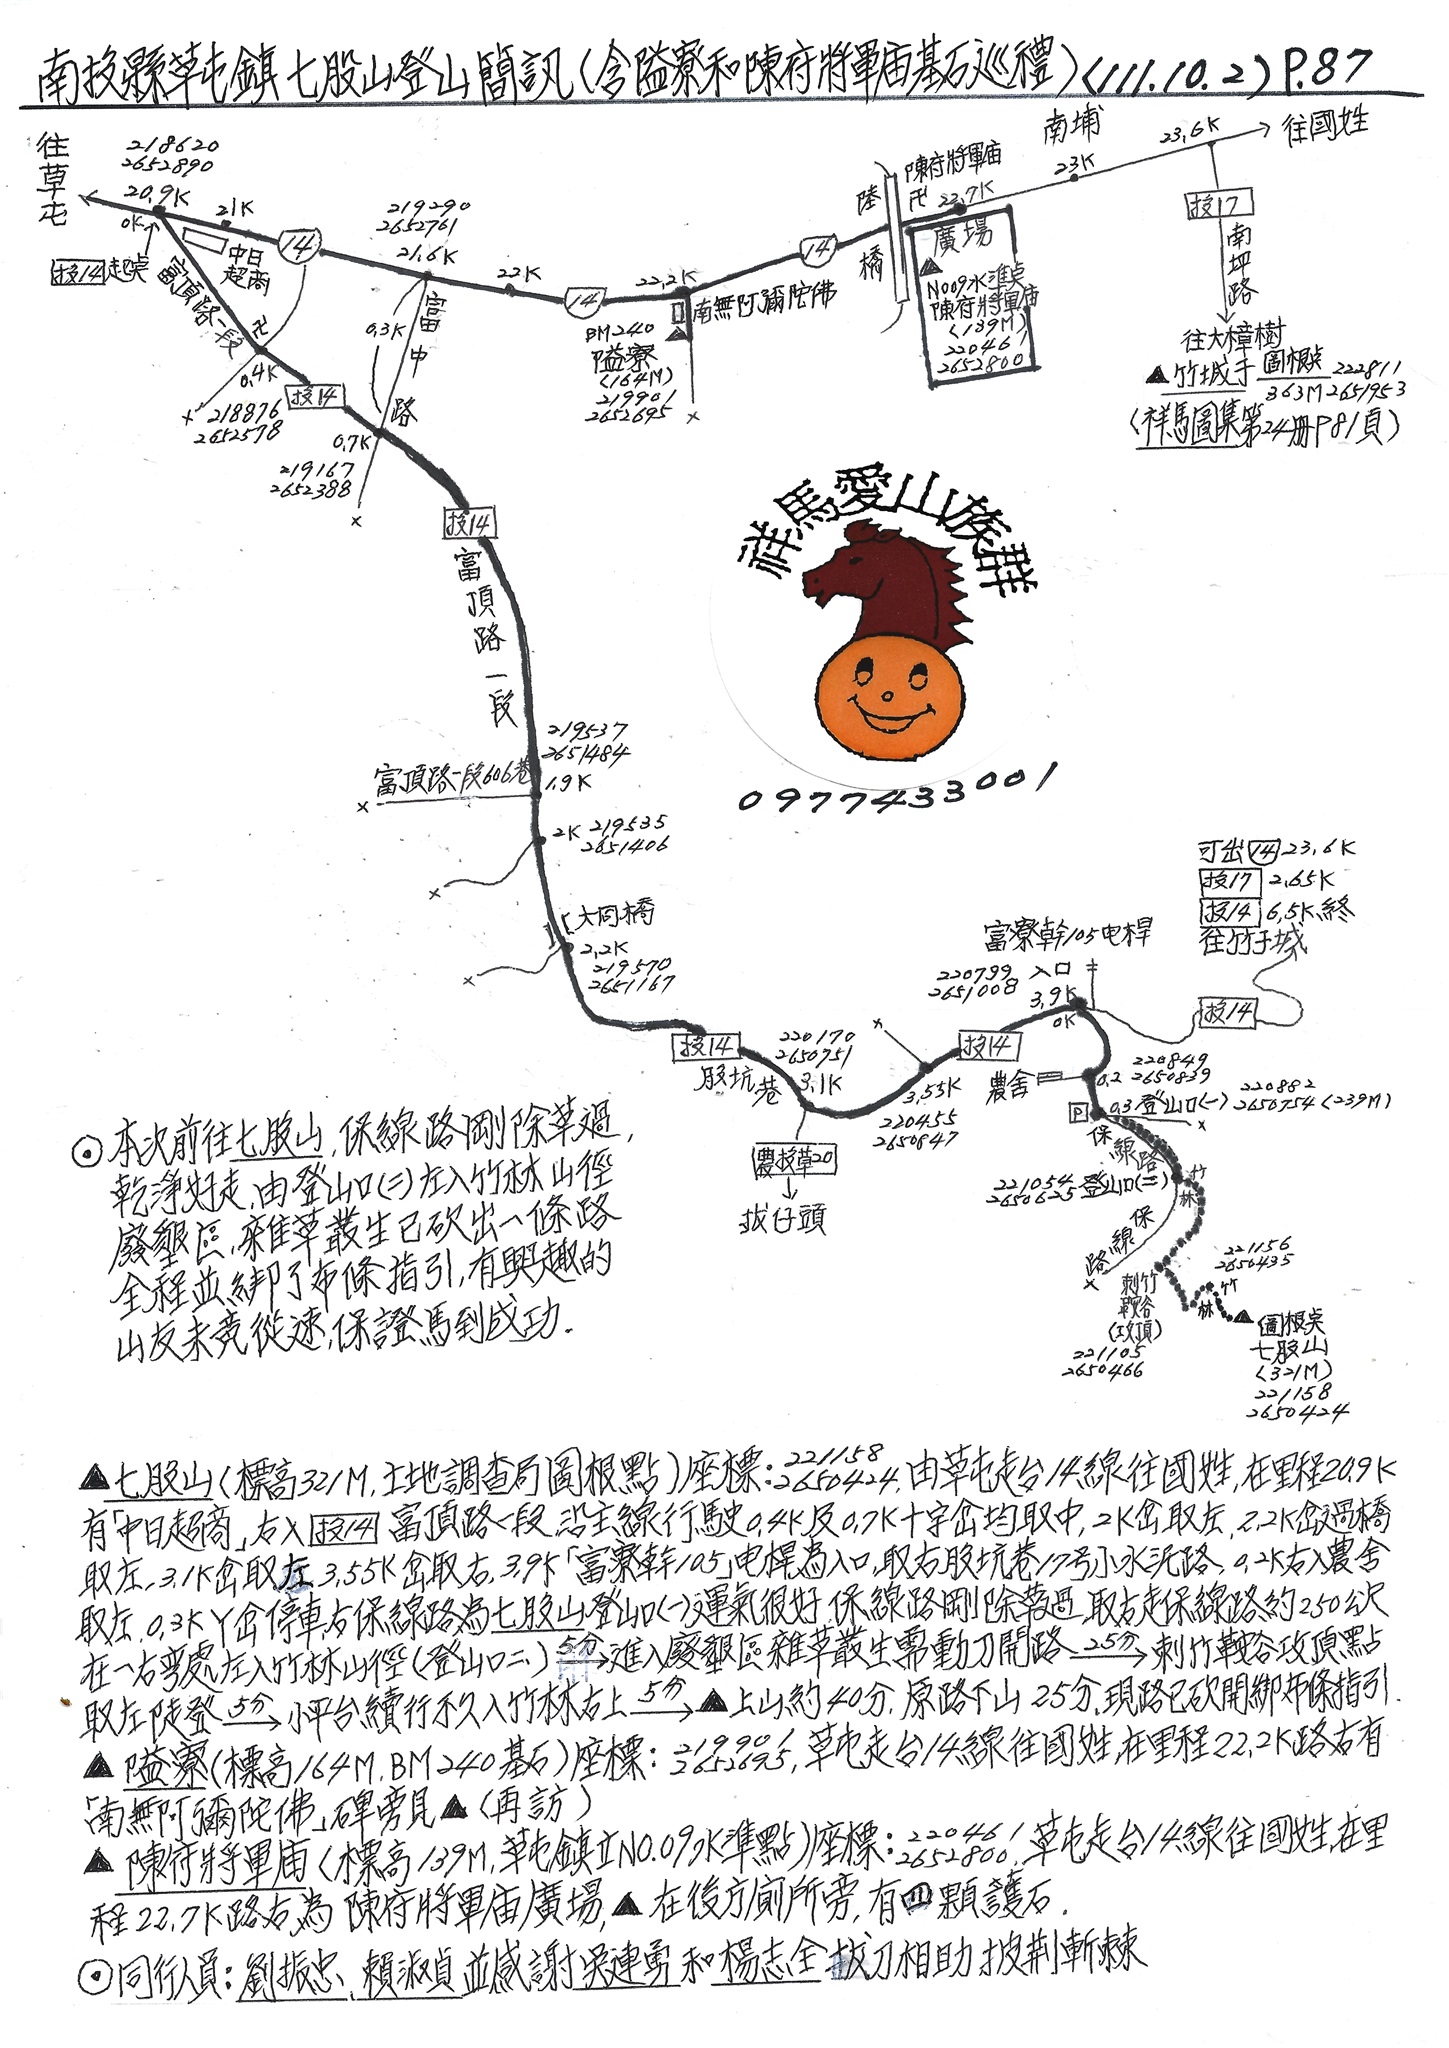 南投縣草屯鎮七股山登山簡訊(含隘寮和陳府將軍庙基石巡禮)<111.10.2>P.87
往草屯
218620
2652890
20.9K
0K
21K
投14起点
中日超商
富頂路一段
14
219290
2652761
21.6K
22K
14
22.2K
南無阿彌陀佛
BM240
隘寮
(164M)
219901
2652695
14
陸橋
陳府將軍庙
卍
22.7K
廣場
NO09水準点
陳府將軍庙
(139M)
220461
2652800
南埔
23K
23.6K
往國姓
投17
南坪路
往大樟樹
▲竹城子 圖根点 222811
363M 2651953
(祥馬圖集第24冊P81頁)
卍
0.4K
218876
2652578
投14
0.3K
富中路
0.7K
219167
2652388
投14
富頂路一段
祥馬愛山族群
0977433001
219537
2651484
富頂路一段606巷
1.9K
2K 219535
2651406
大同橋
2.2K
219570
2651167
投14
股坑巷
220170
2650751
3.1K
農投草20
拔仔頭
3.55K
220455
2650847
投14
富寮幹105电桿
220799 入口
2651008 3.9K
0K
可出14 23.6K
投17 2.65K
投14 6.5K終
往竹子城
投14
農舍
0.2 220849
2650839
P
0.3登山口(一) 220882
2650754 (239M)
保線路
221054 登山口(二)
2650625
竹林
保線路
刺竹鞍谷(攻頂)
221105
2650466
221156
2650435
竹林
圖根点
七股山
(321M)
221158
2650424
⊙本次前往七股山,保線路剛除草過,
乾淨好走,由登山口(二)左入竹林山徑
廢墾區,雜草叢生已砍出一條路
全程並綁了布條指引,有興趣的
山友未竟從速,保證馬到成功.
▲七股山(標高321M,土地調查局圖根點)座標:221158 2650424,由草屯走台14線往國姓,在里程20.9K
有「中日超商」右入投14富頂路一段沿主線行駛0.4K及0.7K十字岔均取中,2K岔取左,2.2K岔過橋
取左,3.1K岔取左,3.55K岔取右,3.9K「富寮幹105」电桿為入口,取右股坑巷17号小水泥路,0.2K右入農舍
取左,0.3K丫岔停車右保線路為七股山登山口(一)運氣很好,保線路剛除草過,取右走保線路約250公尺
在一右彎處左入竹林山徑(登山口二)5分→進入廢墾區雜草叢生需動刀開路25分→刺竹鞍谷攻頂點
取左陡登5分→小平台續行不久入竹林右上5分→▲上山約40分,原路下山25分,現路已砍開綁布條指引.
▲隘寮(標高164M,BM240基石)座標:219901 2652695,草屯走台14線往國姓,在里程22.2K路右有
「南無阿彌陀佛」碑旁見▲(再訪)
▲陳府將軍庙(標高139M,草屯鎮立NO.09水準點)座標:220461 2652800,草屯走台14線往國姓,在里
程22.7K路右為陳府將軍庙廣場,▲在後方廁所旁,有四顆護石.
⊙同行人員:劉振忠、賴淑貞並感謝吳連勇和楊志全拔刀相助披荆斬棘